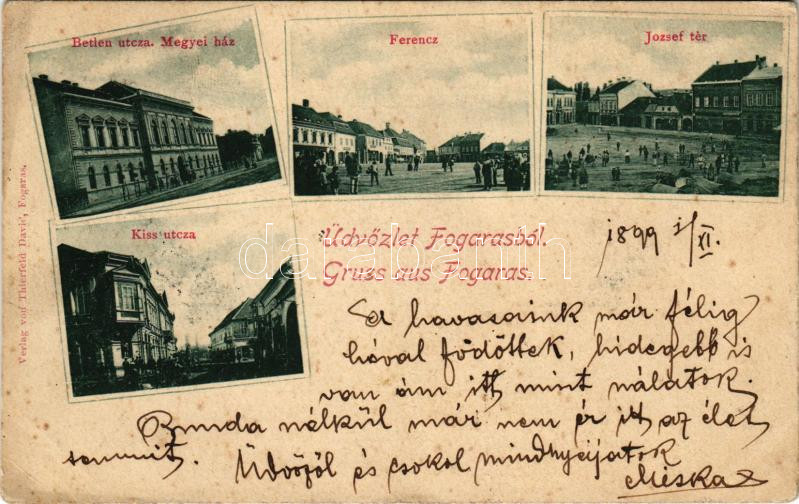 Betlen utcza. Megyei ház
Ferencz
Jozsef tér
Kiss utcza
Verlag von Thierfeld David, Fogaras.
Üdvözlet Fogarasból.
Gruss aus Fogaras.
darabanth
1899 1/XI.
havasaink már félig
hóval födöttek, hidegebb is
van ám itt mint nálatok.
Bunda nélkül már nem ér itt az élet
semmit. Üdvözöl és csokol mindnyájatok
Miska